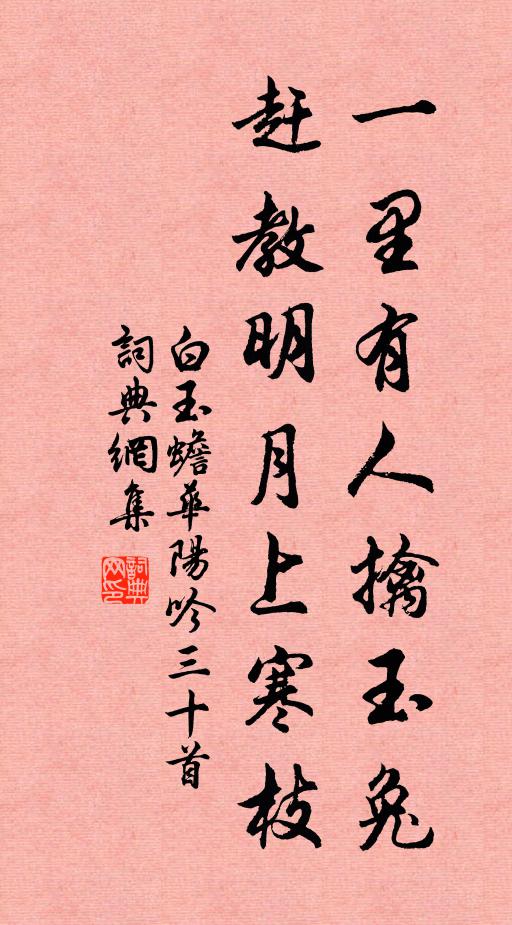 一里有人擒玉兔
赶教明月上寒枝
白玉蟾華陽吟三十首
詞典網集
詞典网印